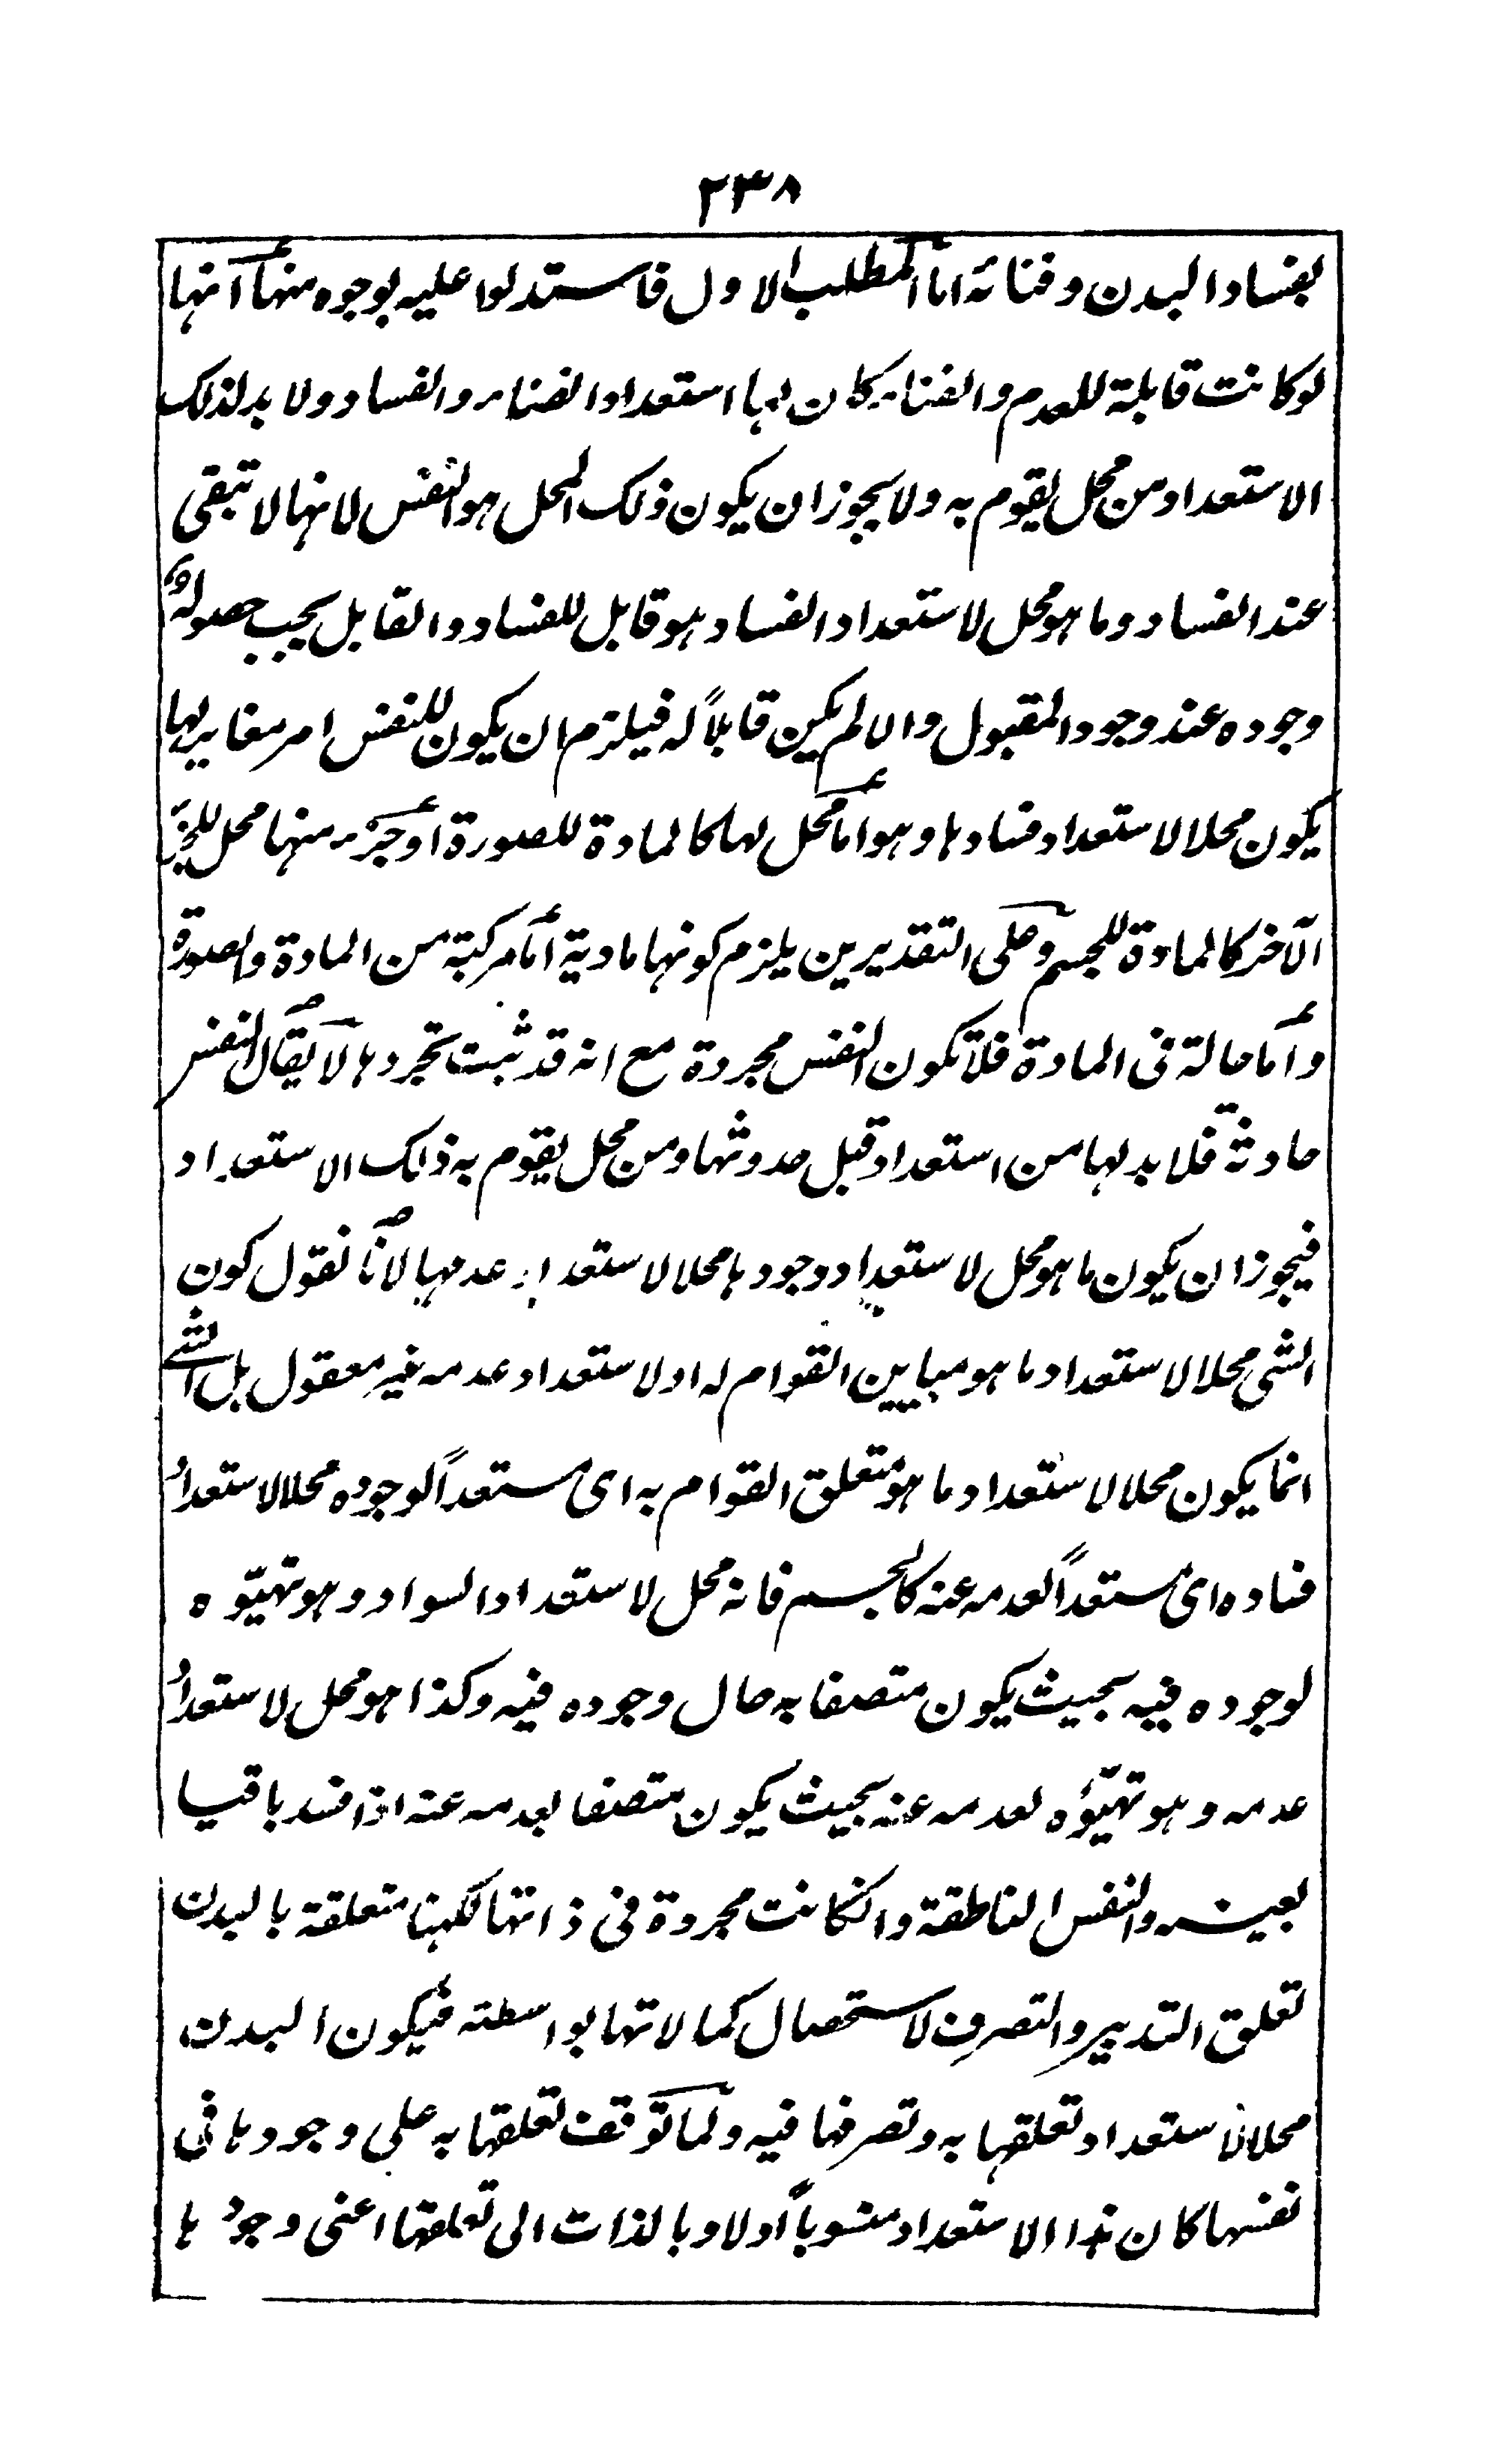 ٢٣٨
بفساد البدن وفنائه اما المطلب الاول فاستدلوا عليه بوجوه منها انها
لو كانت قابلة للعدم والفناء كان لها استعداد الفناء والفساد ولا بد لذلك
الاستعداد من محل يقوم به ولا يجوز ان يكون ذلك المحل هو النفس لانها لا تبقى
عند الفساد وما هو محل لاستعداد الفساد هو قابل للفساد والقابل يجب حصوله و
وجوده عند وجود المقبول والا لم يكن قابلاً له فيلزم ان يكون للنفس امر مغاير لها
يكون محلا لاستعداد فسادها وهو اما محل لها كالمادة للصورة او جزء منها محل للجزء
الآخر كالمادة للجسم وعلى التقديرين يلزم كونها مادية اما مركبة من المادة والصورة
واما حالة فى المادة فلا تكون النفس مجردة مع انه قد ثبت تجردها لا يقال النفس
حادثة فلا بد لها من استعداد قبل حدوثها ومن محل يقوم به ذلك الاستعداد
فيجوز ان يكون ما هو محل لاستعداد وجودها محلا لاستعداد عدمها لانا نقول كون
الشى محلا لاستعداد ما هو مباين القوام له او لاستعداد عدمه غير معقول بل الشے
انما يكون محلا لاستعداد ما هو متعلق القوام به اى مستعداً لوجوده محلا لاستعداد
فساده اى مستعداً لعدمه عنه كالجسم فانه محل لاستعداد السواد وهو تهيّوه
لوجوده فيه بحيث يكون متصفا به حال وجوده فيه وكذا هو محل لاستعداد
عدمه وهو تهيّؤه لعدمه عنه بحيث يكون متصفا بعدمه عنه اذا فسد باقيا
بعينه والنفس الناطقة وانكانت مجردة فى ذاتها لكنها متعلقة بالبدن
تعلق التدبير والتصرف لاستحصال كمالاتها بواسطته فيكون البدن
محلا لاستعداد تعلقها به وتصرفها فيه ولما توقف تعلقها به على وجودها فى
نفسها كان هذا الاستعداد منسوباً اولا وبالذات الى تعلقها اعنى وجودها